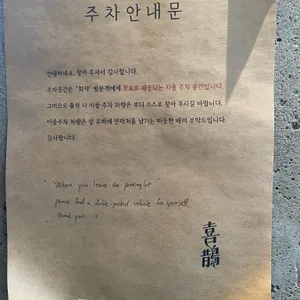 주차안내문
안녕하세요, 찾아 주셔서 감사합니다.
주차공간은 '희작' 방문객에게 무료로 제공되는 자율 주차 공간입니다.
그러므로 출차 시 이중 주차 차량은 부디 스스로 찾아 주시길 바랍니다.
이중주차 차량은 앞 유리에 연락처를 남기는 따듯한 배려 부탁드립니다.
감사합니다.
"When you leave the parking lot
please find a double parked vehicle for yourself"
Thank you :)
喜鵲